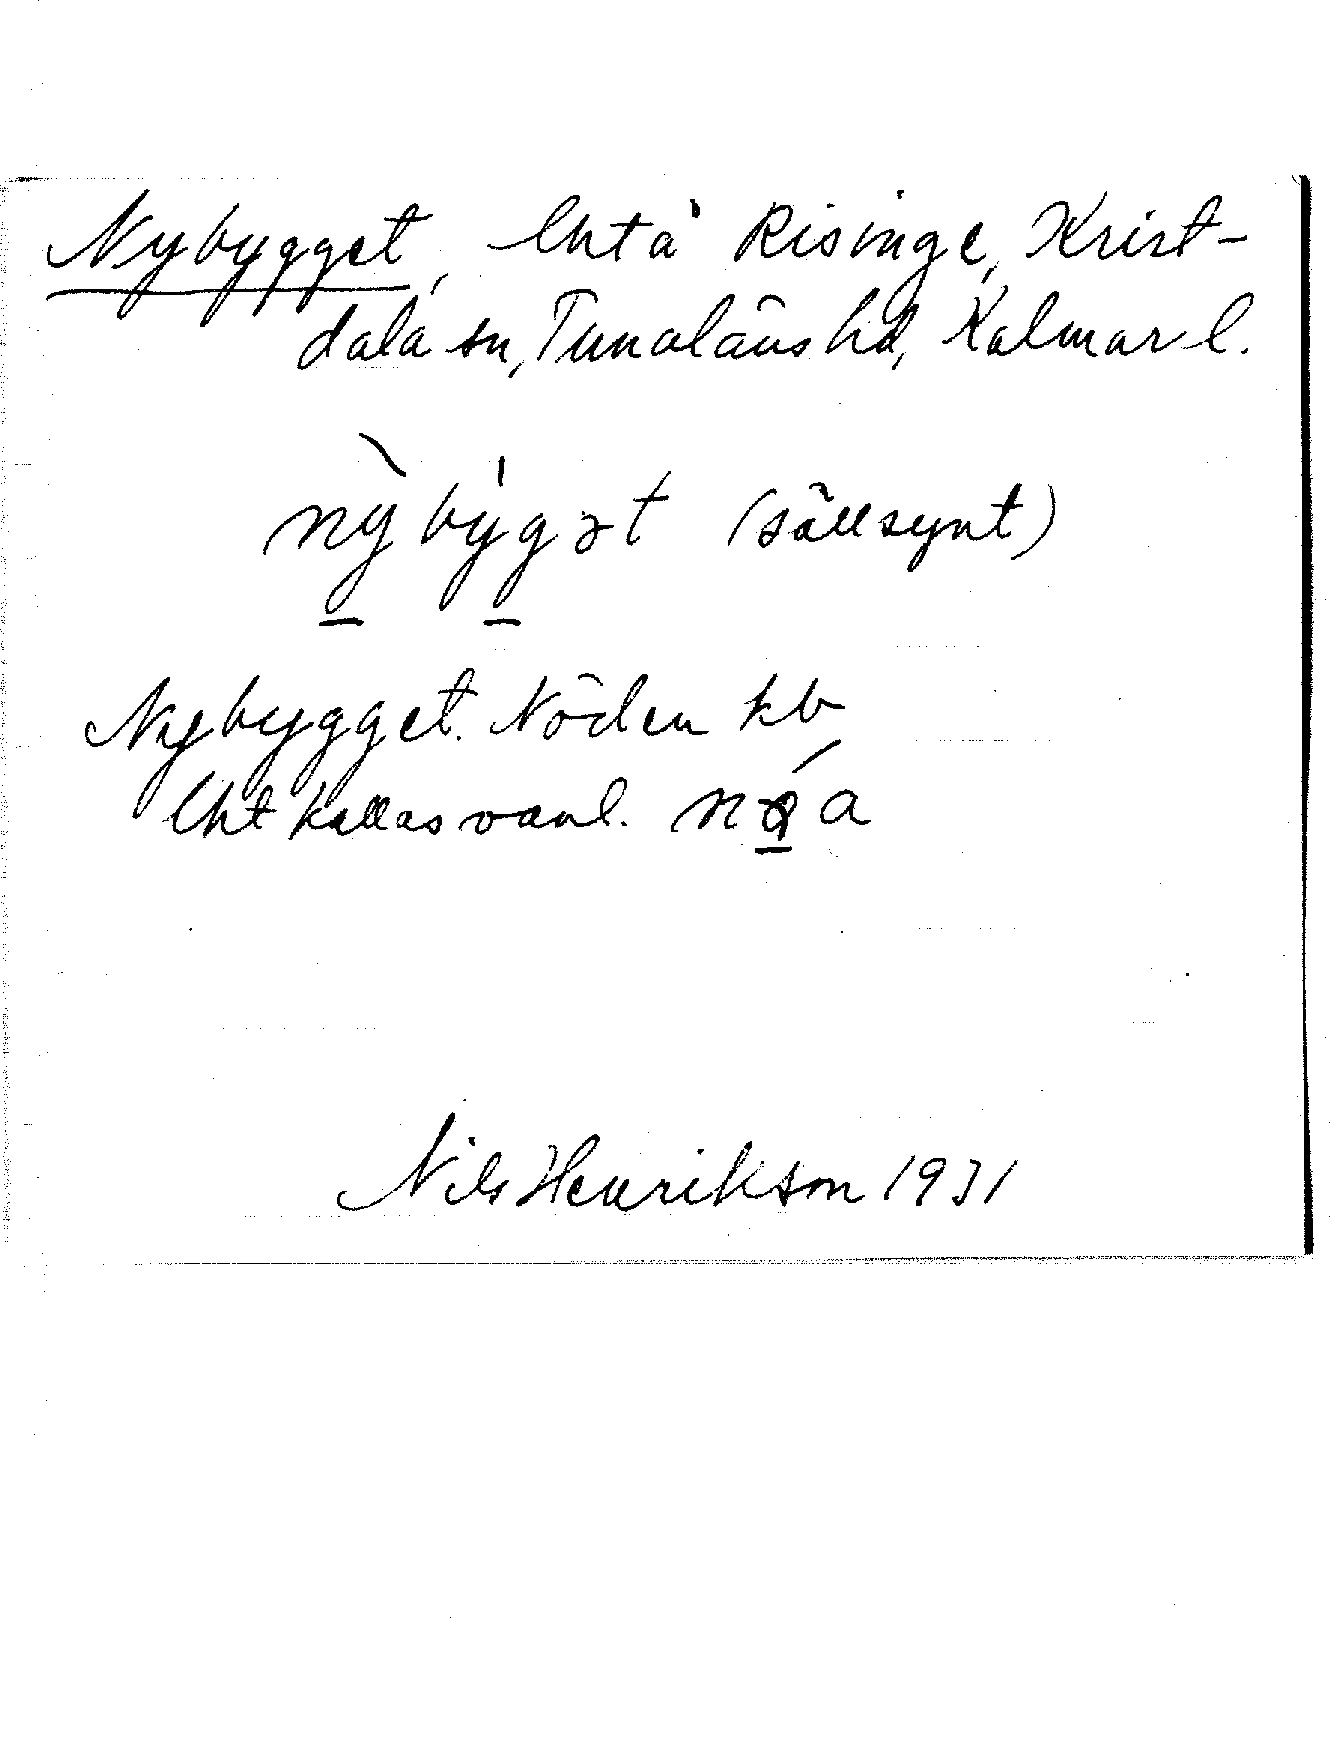 Nybygget, lht å Risinge, Krist-
dala sn, Tunaläns hd, Kalmar l.
nỳby̍gət (sällsynt)
Nybygget. Nöden kb
lht kallas vanl. nǿa
Nils Henrikson 1931